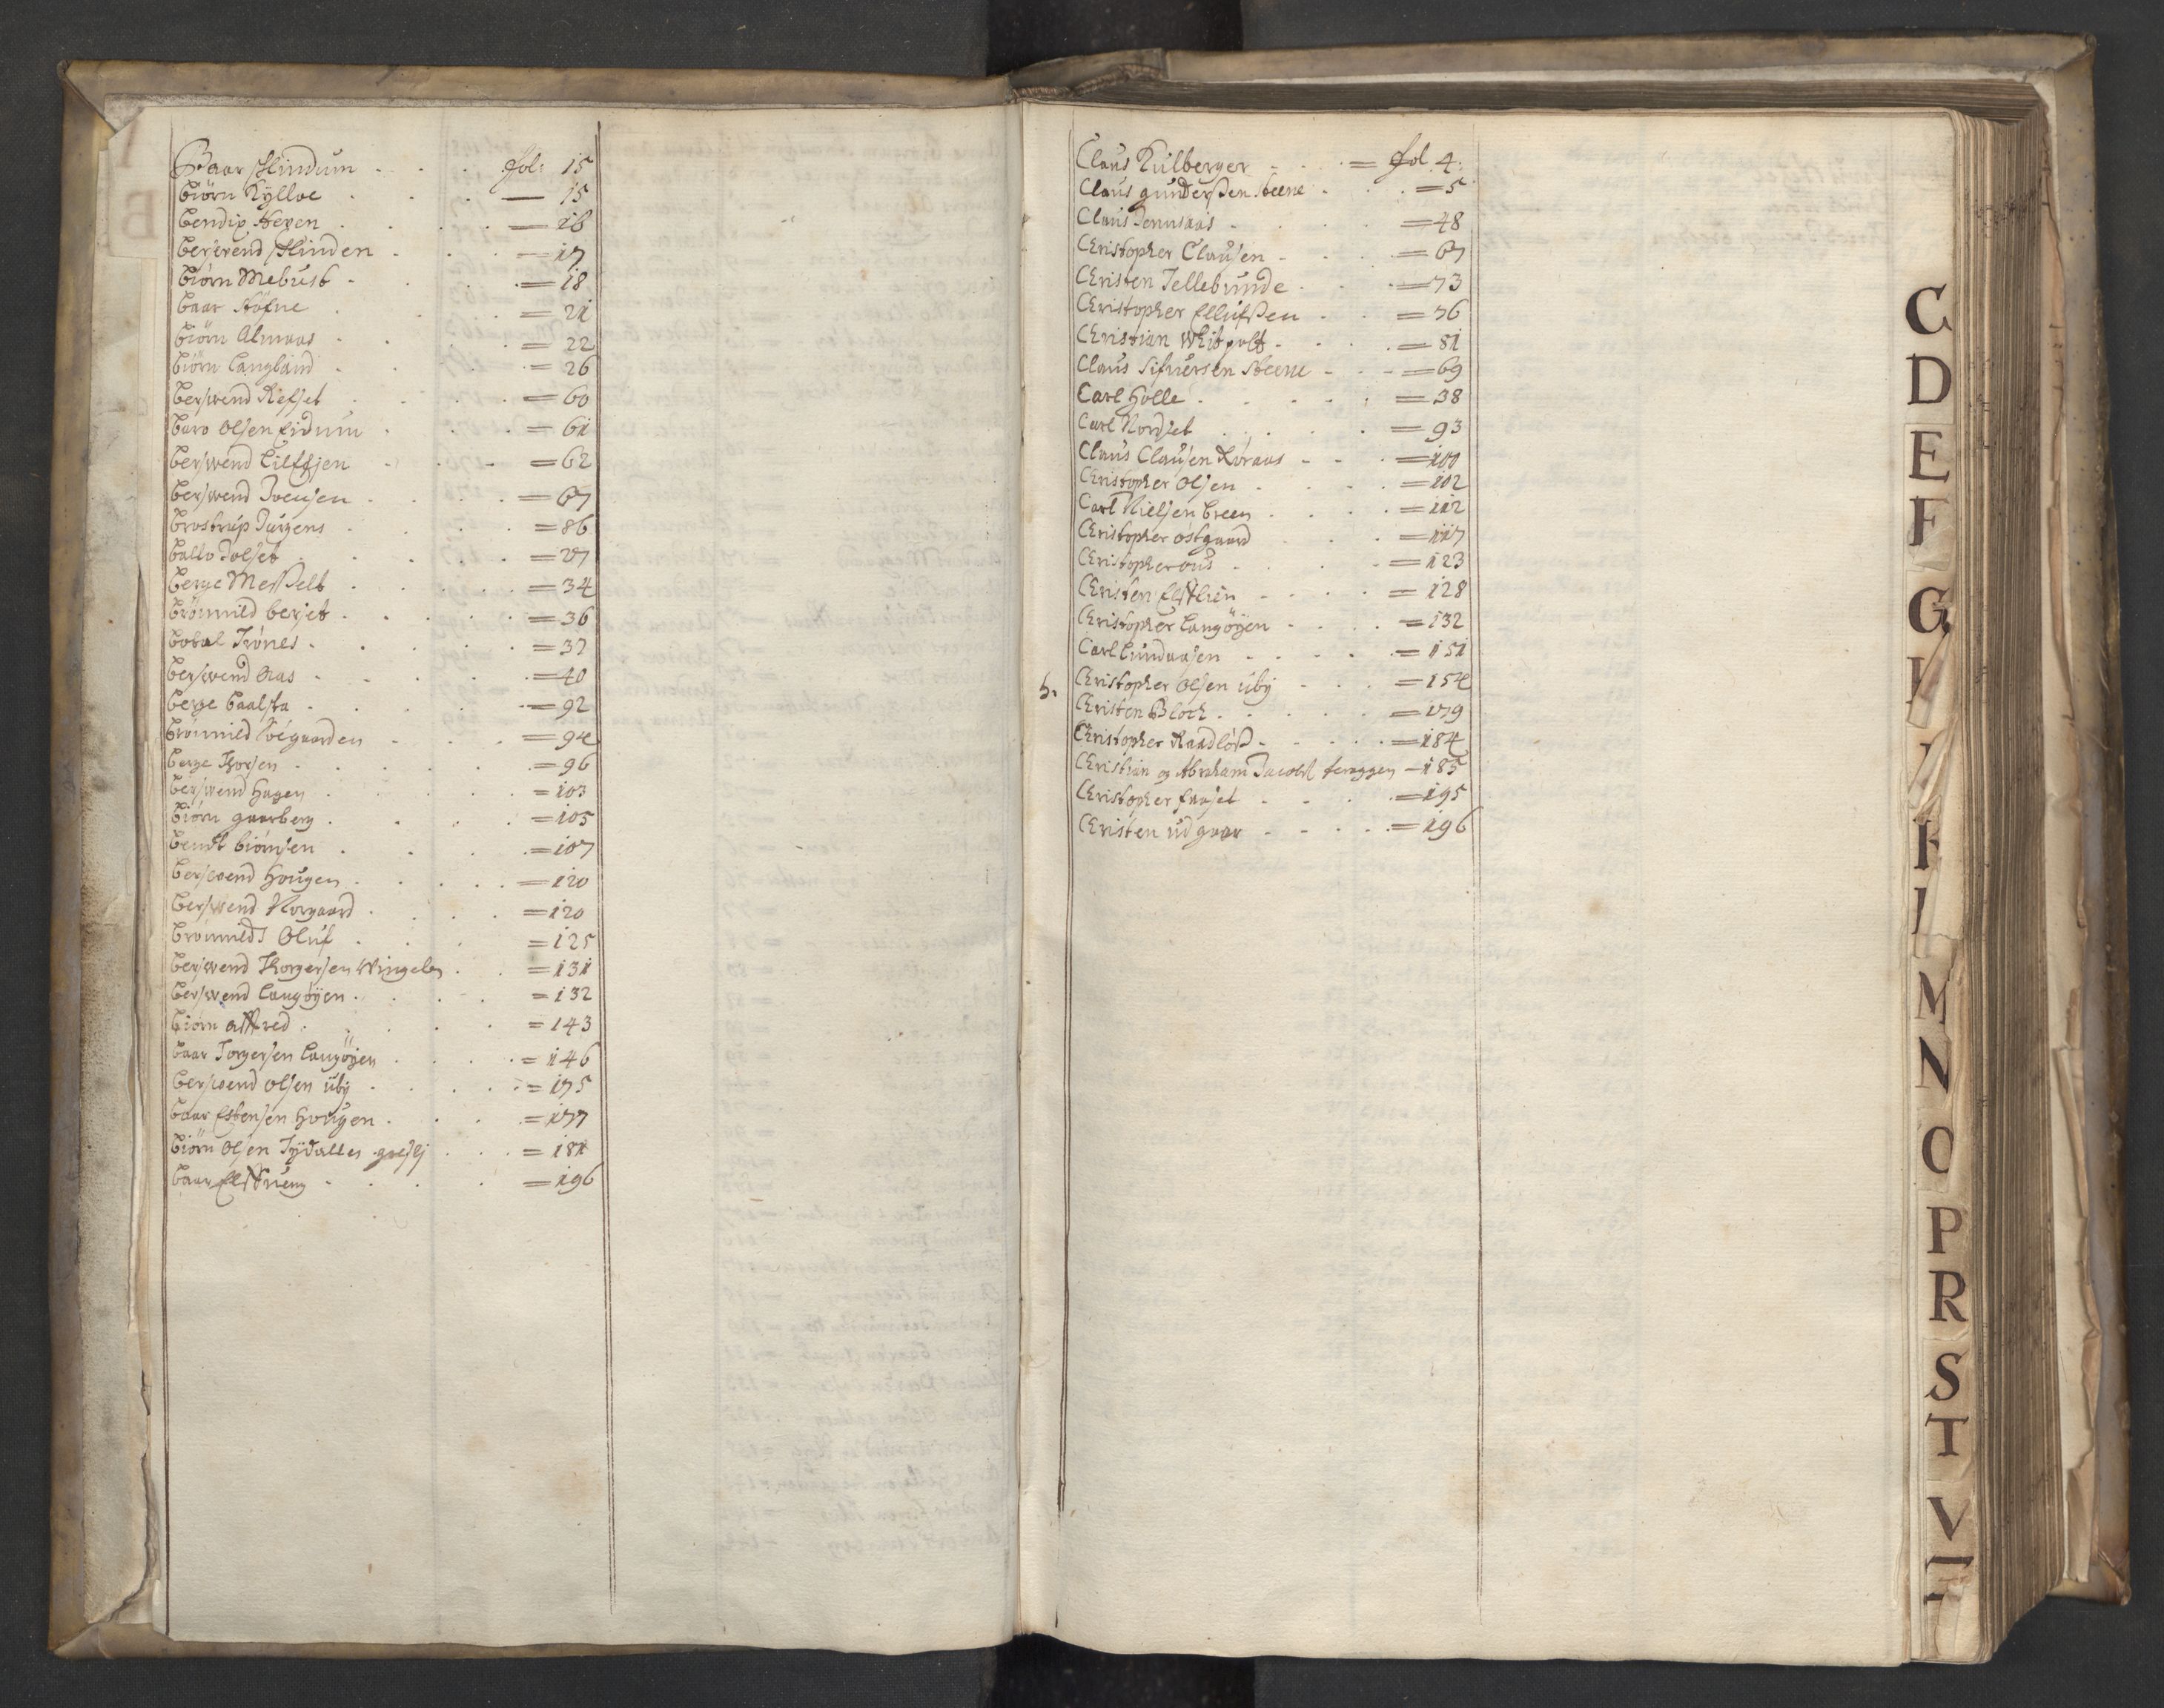 Baar Slindum . . . fol: 15
biørn Kÿlloe . . . — 15
bendix Heyen . . . = 16
berserend Slinden . . = 17
biørn Mebust . . . = 18
baar Stöfne . . . = 21
biörn Almaas . . . = 22
biörn Langland . . . = 26
berswend Refset . . . = 60
baro Olsen Eidum . . = 61
berswend Lilffjen . . = 62
berswend Ivensen . . . = 67
brostrup Jurgens . . . = 86
ballo Dolset . . . = 27
berge Messelt . . . = 34
brönnild berset . . . = 36
botal Trönes . . . = 37
berswend Aas . . . = 40
berge baalsta . . . = 92
brönnild Söegaarden . . = 94
berge Thorsen . . . = 96
berswend Hagen . . . = 103
biörn gaarberg . . . = 105
bendt biörnsen . . . = 107
berswend Hougen . . . = 120
berswend Norgaard . . . = 120
brönnilds Oluf . . . = 125
berswend Thorgersen Wingelen . . = 131
berswend Langöÿen . . . = 132
biörn . . . = 143
baar Torgersen Langöÿen . . . = 146
berswend Olsen übÿ . . . = 175
baar Estensen Hougen . . . = 177
biörn Olsen Tÿdalles . . = 181
baar . . . = 196
Claus Kulberger - . . = fol. 4:
Claus gunderssen Steene . . = 5
Claus . . . = 48
Christopher Clausen - . . = 67
Christen Tellebunde . . = 73
Christopher Ellufssen . . = 76
Christian Whitpolt - . . = 81
Claus Sifuersen Steene - - - = 69
Carl Holle . . . . = 38
Carl Nordset . . . = 93
Claus Clausen Röraas - - . = 100
Christopher Olsen . . . = 102
Carl Nielsen breen . . . = 112
Christopher östgaard . . = 117
Christopher ous . . . = 123
Christen Estlien - . . = 128
Christopher Langöÿen - . . = 132
Carl Lundaasen . . . = 151
h. Christopher Olsen übÿ . . . = 154
Christen Block . . . = 179
Christopher Raadlöss - . . = 184
Christian og Abraham Jacobs feraggen — 185
Christopher faaset . . . = 195
Christen udgaar - . . = 196
C
D
E
F
G
M
N
O
P
R
S
T
V